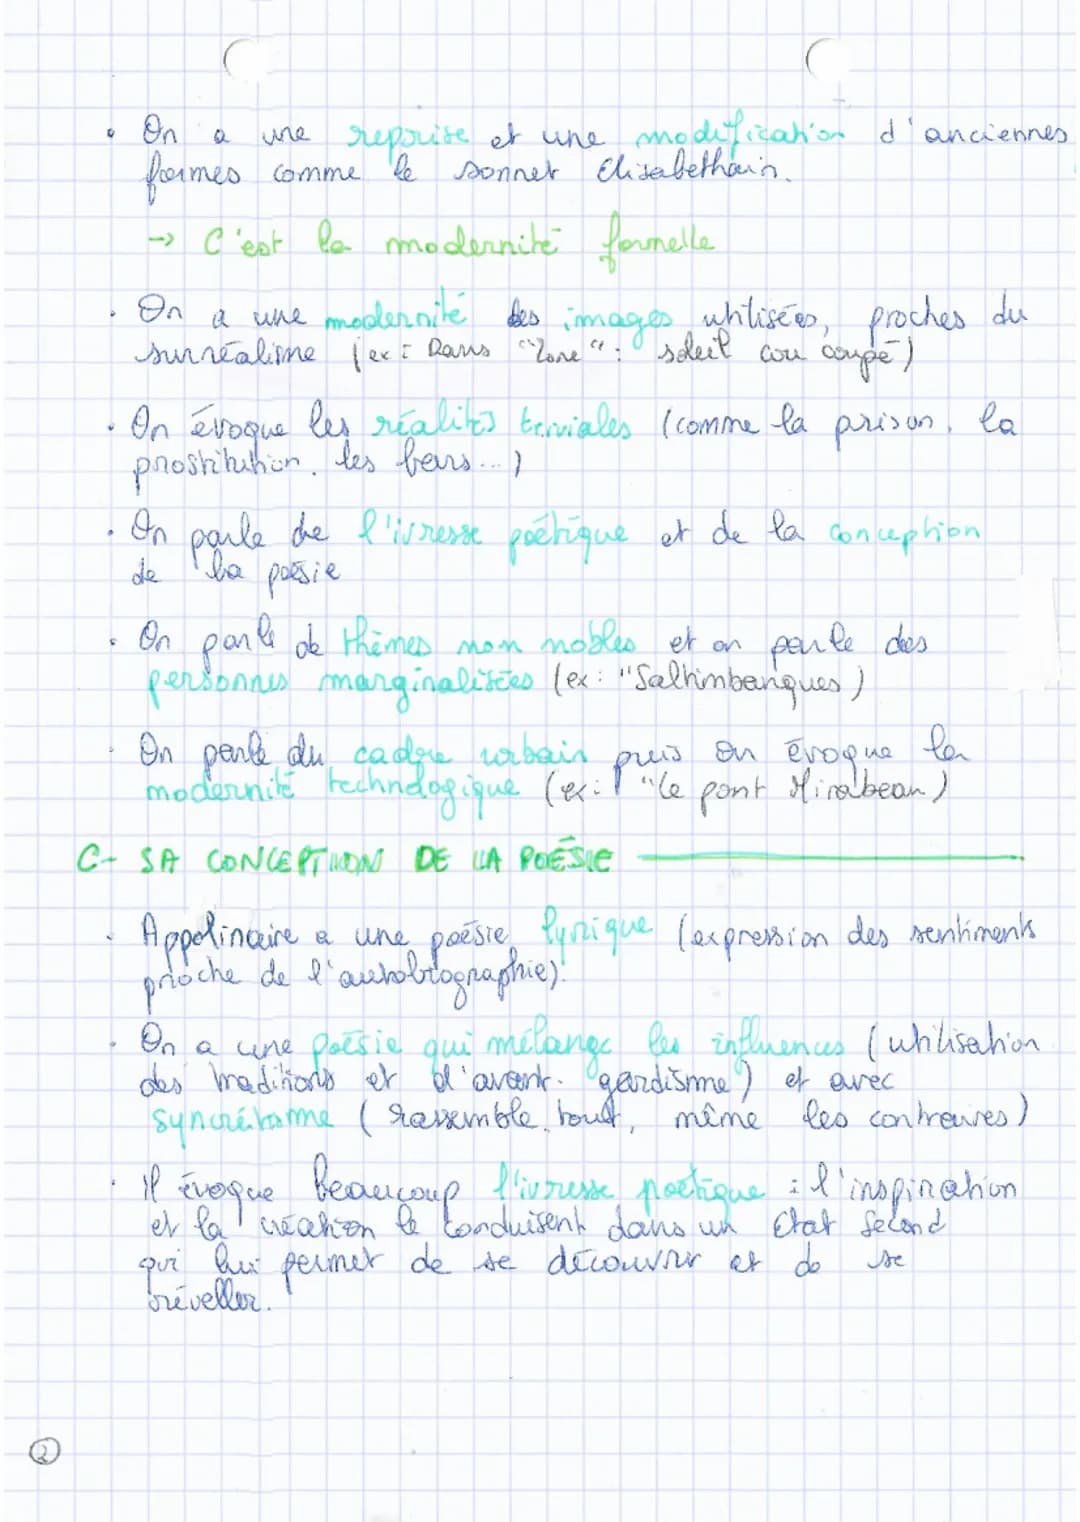 • On a une reprise et une modification d'anciennes
formes comme le sonnet Elisabethain.
-> C'est la modernité formelle
• On a une modernité des images utilisées, proches du
surréalisme (ex: Dans "Zone": soleil cou coupé)
• On évoque les réalités triviales (comme la prison, la
prostitution, les bars...)
• On parle de l'ivresse poétique et de la conception
de la poésie
• On parle de thèmes non nobles et on parle des
personnes marginalisées (ex: "Saltimbanques)
• On parle du cadre urbain puis on évoque la
modernité technologique (ex: "Le pont Mirabeau)
C- SA CONCEPTION DE LA POÉSIE
• Appolinaire a une poésie lyrique (expression des sentiments
proche de l'autobiographie).
• On a une poésie qui mélange les influences (utilisation
des traditions et d'avant-gardisme) et avec
syncrétisme (rassemble tout, même les contraires)
• Il évoque beaucoup l'ivresse poétique : l'inspiration
et la création le conduisent dans un Etat second
qui lui permet de se découvrir et de se
réveller.
2